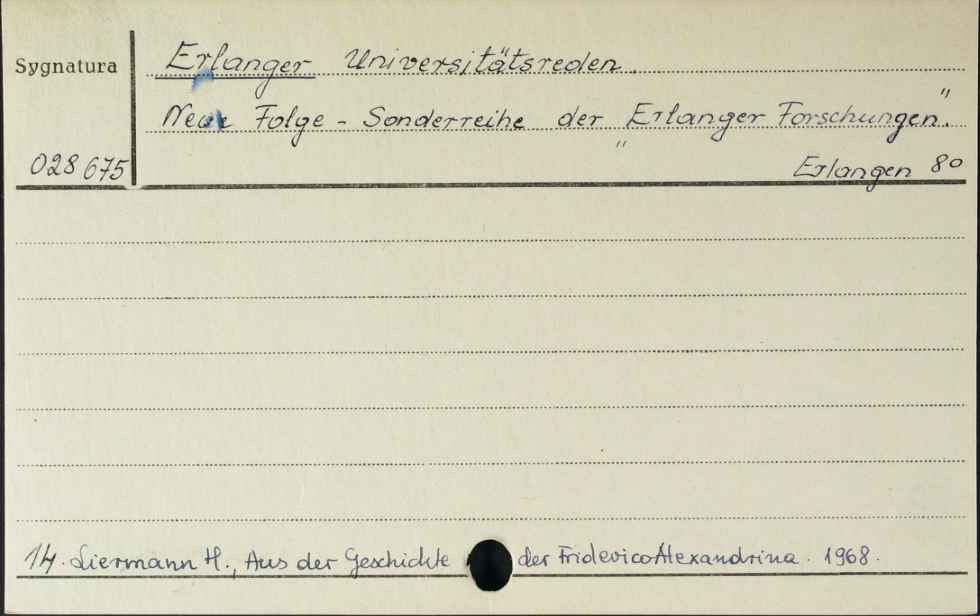 Sygnatura
Erlanger Universitätsreden.
Neue Folge - Sonderreihe der "Erlanger Forschungen".
028 675
Erlangen 8°
14. Liermann H., Aus der Geschichte der Friderico-Alexandrina. 1968.